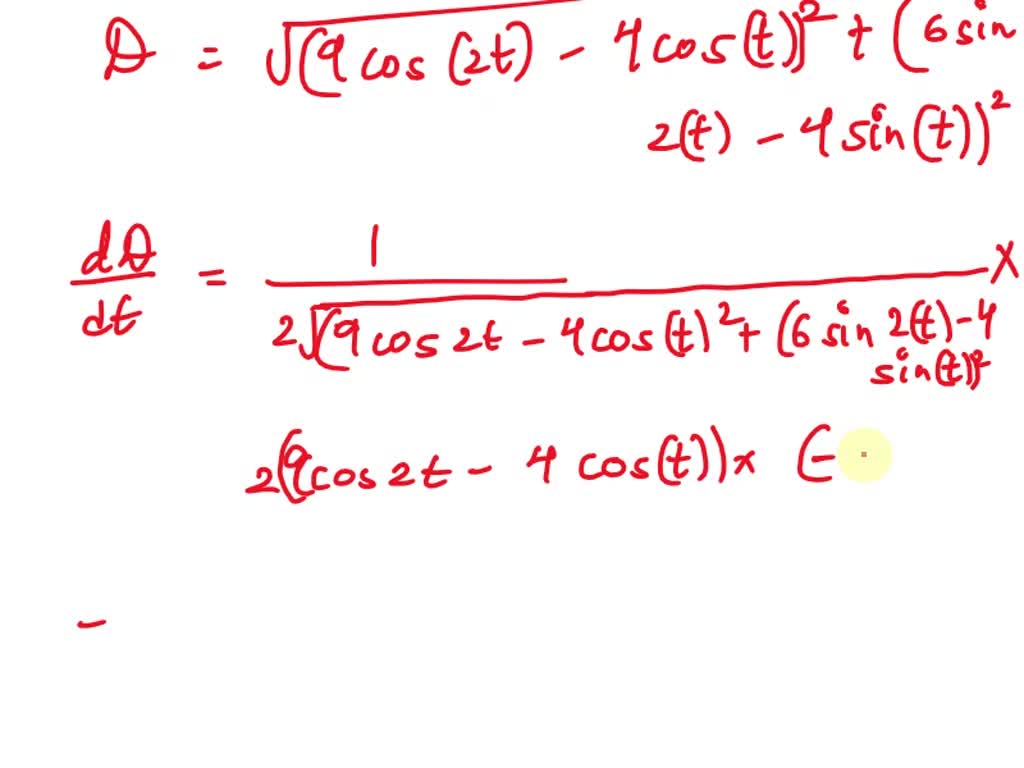 D = √(9 cos (2t) - 4 cos(t))² + (6 sin
2(t) - 4 sin(t))²
dD/dt = 1/2√(9 cos 2t - 4 cos(t)² + (6 sin 2(t) - 4 ×
sin(t))²
2(9 cos 2t - 4 cos(t)) × (-
-